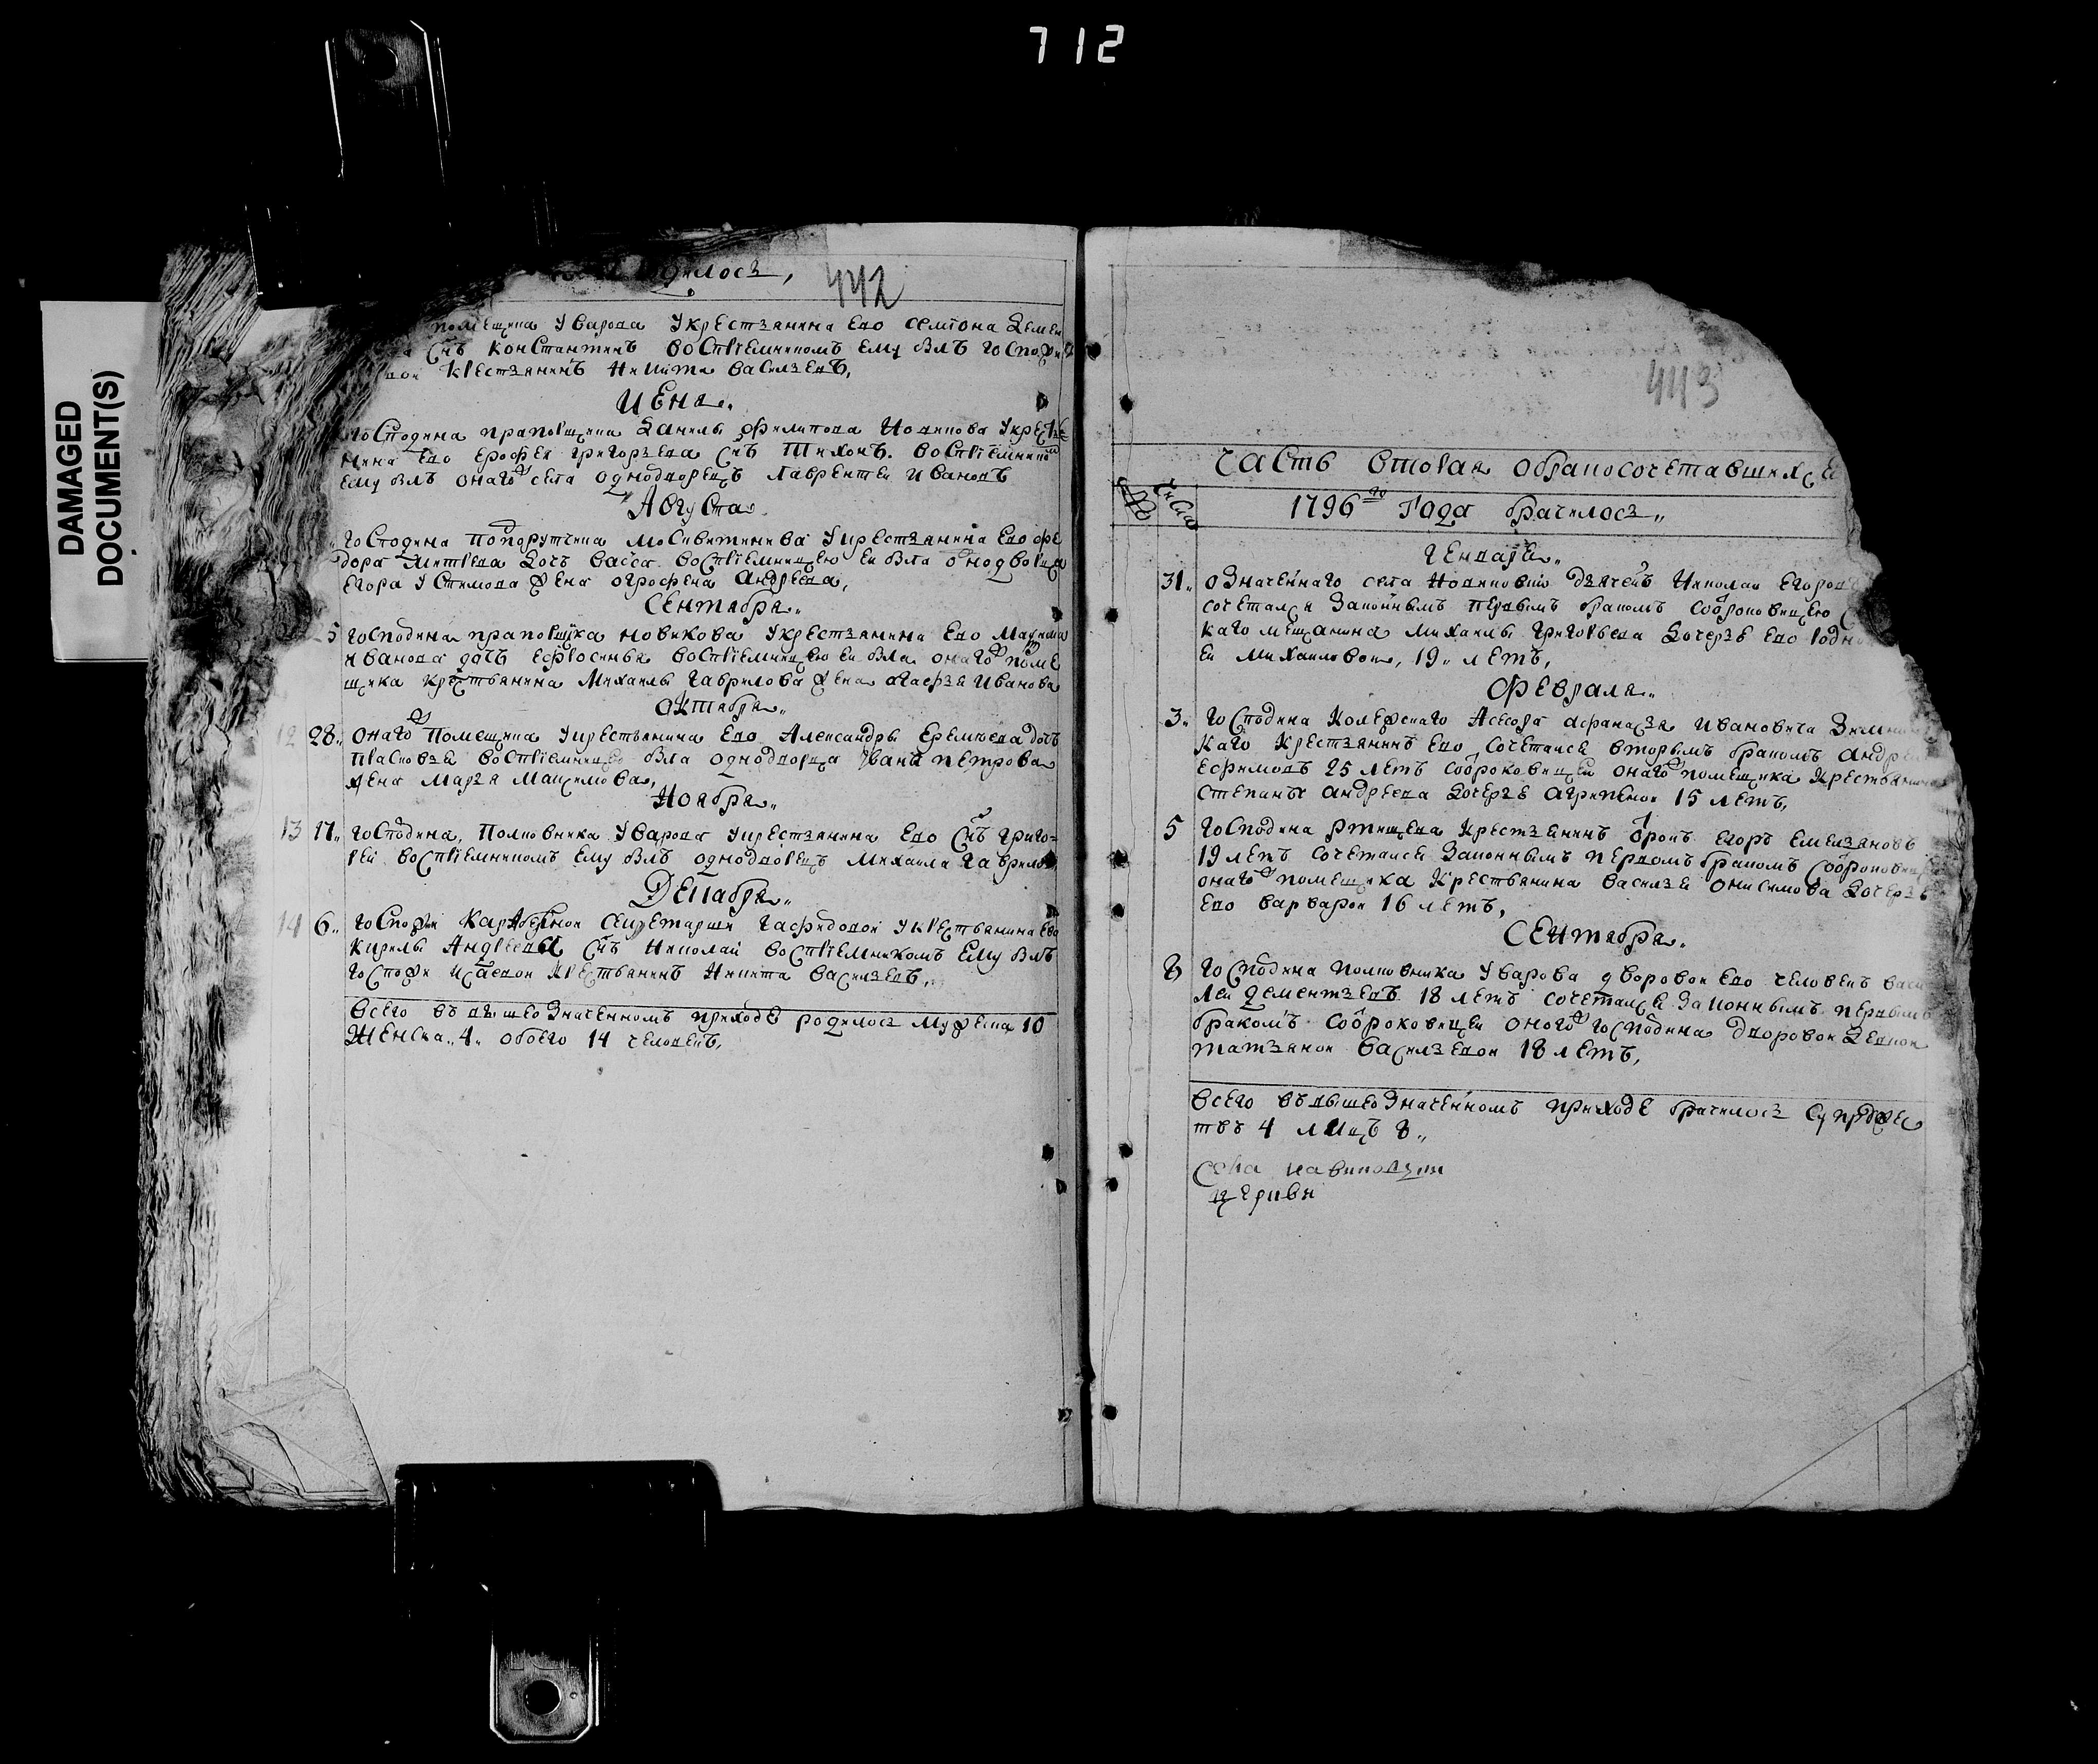 712
DAMAGED
DOCUMENT(S)
442
помещика Уварова Укрестьянина Ево семiона Земен
Сн҃ъ константинъ воспрiемникомъ ему былъ госпожи
крестьянинъ Никита васильевъ,
Июна.
Господина прапорщика Данилы филипова Новикова Укресть
нина Ево ерофея григорьева Сн҃ъ Тихонъ. воспрiемникомъ
ему былъ онаго села однодворецъ лаврентеи Ивановъ
Августа.
Господина подпорутчика Укрестьянина Ево фе
дора Дочь васса воспрiемницею еи была однодворца
Егора Устинова жена огрофена Андреева,
Сентабра„
5 господина прапорщика новикова Укрестьянина Ево
иванова дочь ефросинья воспрiемницею еи была онаго поме
щика крестьянина Михаилы гаврилова жена агафья Иванова
октабра„
12 28„ онаго Помещика Укрестьянина Ево Александры Еремеева дочь
Прасковья воспрiемницею была однодворца Ивана петрова
жена Марья Максимова,
Ноабра„
13 17„ господина Полковника Уварова Укрестьянина Ево Сн҃ъ григо=
рей воспрiемникомъ ему былъ однодворецъ Михаила гаврилов
Декабра„
14 6„ госпожи Секретарши Укрестьянина Ева
Кирилы Андреева Сн҃ъ Николай воспрiемникомъ Ему былъ
госпожи крестьянинъ Никита васильевъ„
всего въ вышеозначенномъ приходе родилось мужеска 10
Женска„4„ обоего 14 человекъ,
443
часть вторая обракосочетавшихся
числа
1796го Года брачилось„
Генваря„
31„ означеннаго села Новиковки Дьячекъ Николаи Егоров
сочетался законнымъ первымъ бракомъ
каго мещанина михаилы григорьева Дочерью Ево родно
еи Михаиловои, 19„ летъ,
Февраля„
3„ господина Колежскаго Асесора афанасья ивановича
каго крестьянинъ Ево сочетался вторымъ бракомъ андре
ефимовъ 25 летъ онаго помещика крестьянина
степаны андреева Дочерью агрипенои 15 летъ,
5 господина ртищева крестьянинъ Егоръ емельяновъ
19 летъ сочетался Законнымъ первомъ бракомъ
онаго помещика крестьянина василья онисимова Дочерью
Ево варварои 16 летъ,
Сентабра.
8 господина полковника Уварова дворовои Ево человекъ васи
леи дементьевъ 18 летъ сочетался Законнымъ первымъ
бракомъ оного господина дворовои Девкои
татьянои васильевои 18 летъ,
всего въ вышеозначенномъ приходе брачилось супружес
твъ 4 лицъ 8„
Села
церкви